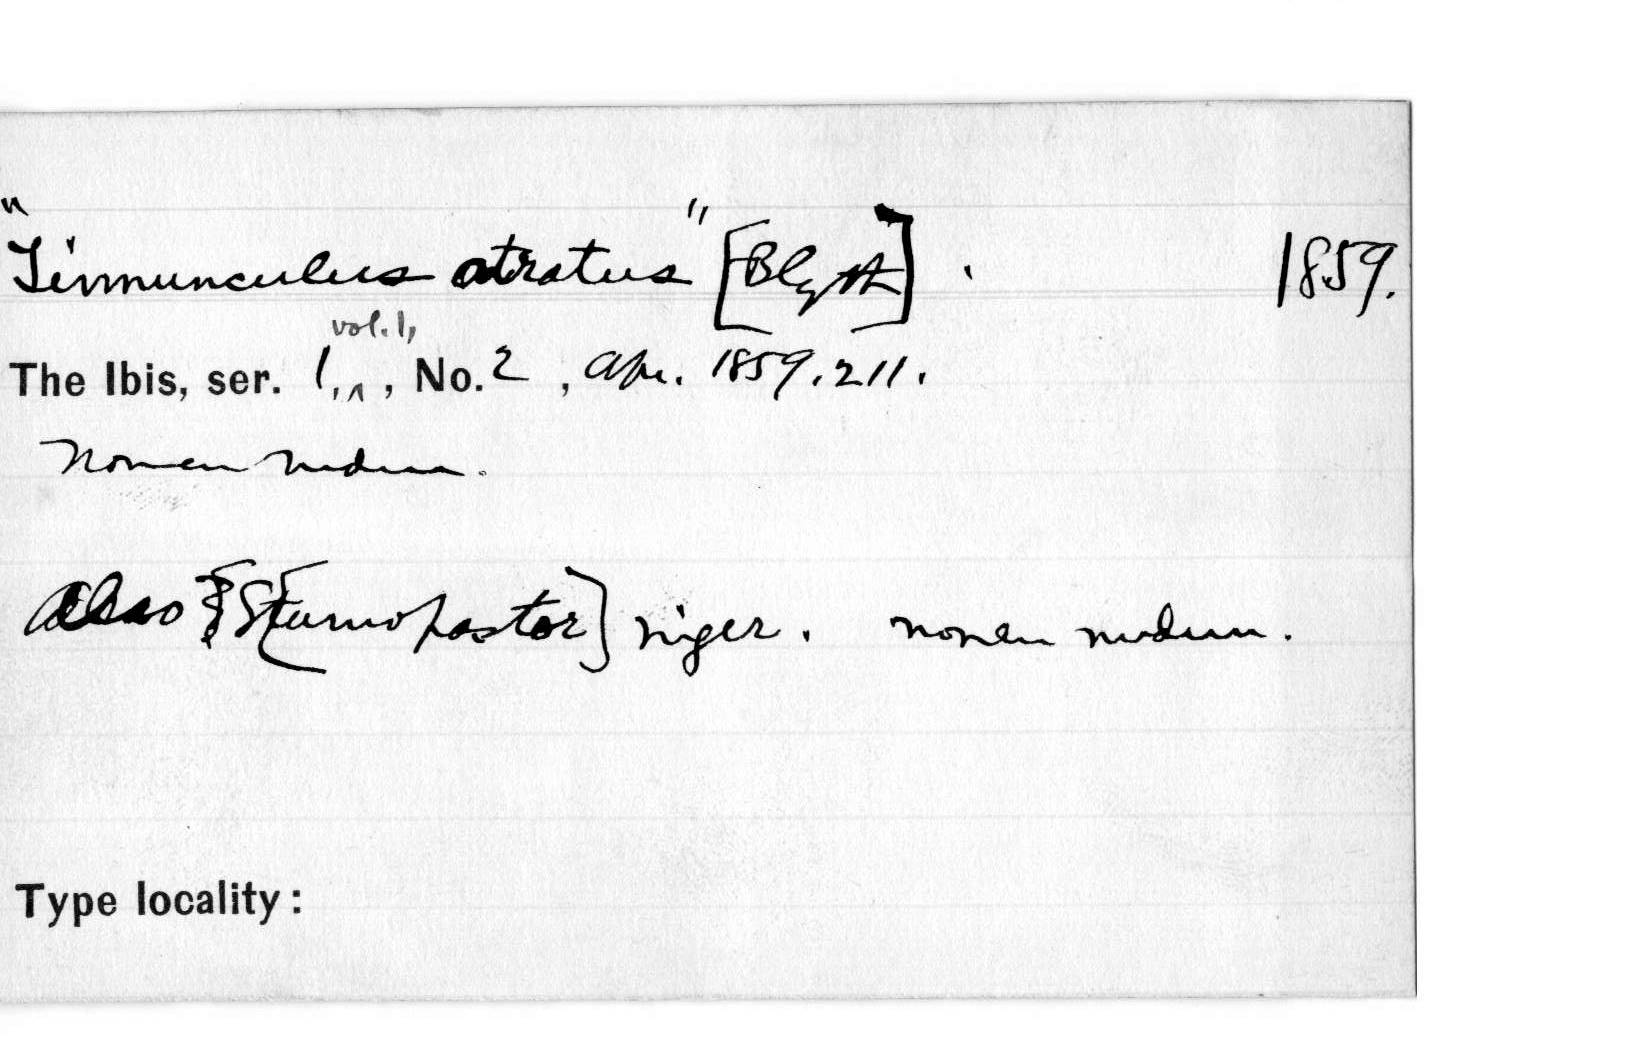 "Tinnunculus atratus" [Blyth]. 1859.
The Ibis, ser. 1, vol. 1, , No. 2 , Apr. 1859. 211.
Nomen nudum.
Also S[turnopastor] niger. nomen nudum.
Type locality: